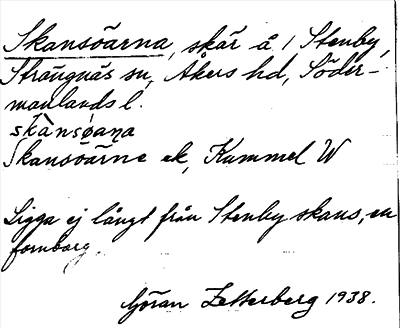 Skansöarna, skär å 1 Stenby,
Strängnäs sn, Åkers hd, Söder-
manlands l.
skànsøaṇa
Skansöarne ek, Kummel W
Ligga ej långt från Stenby skans, en
fornborg.
Göran Zetterberg 1938.